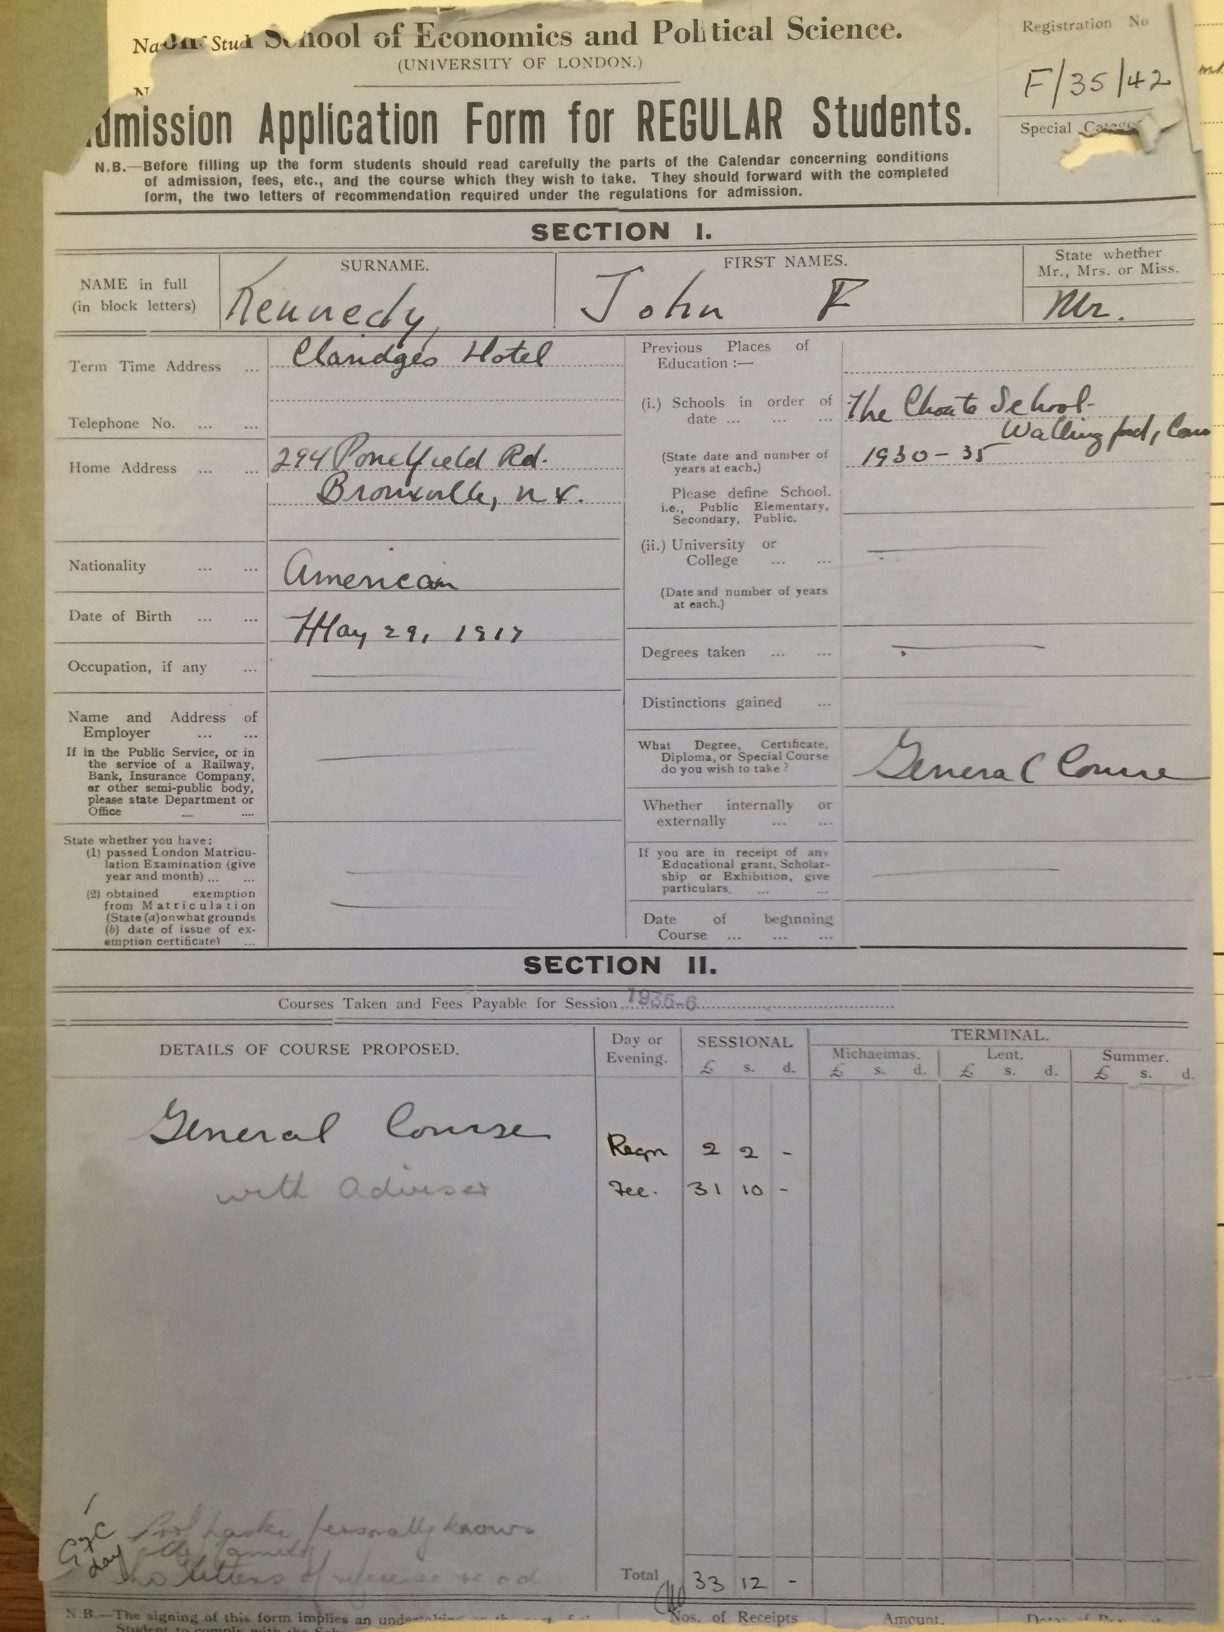 School of Economics and Political Science.
(UNIVERSITY OF LONDON.)
Registration No
F/35/42
Special
Admission Application Form for REGULAR Students.
N.B.—Before filling up the form students should read carefully the parts of the Calendar concerning conditions
of admission, fees, etc., and the course which they wish to take. They should forward with the completed
form, the two letters of recommendation required under the regulations for admission.
SECTION I.
NAME in full
(in block letters)
SURNAME.
Kennedy,
FIRST NAMES.
John F
State whether
Mr., Mrs. or Miss.
Mr.
Term Time Address ...
Claridges Hotel
Telephone No. ... ...
Home Address ... ...
294 Pondfield Rd.
Bronxville, N.Y.
Nationality ... ...
American
Date of Birth ... ...
May 29, 1917
Occupation, if any ...
Name and Address of
Employer ... ...
If in the Public Service, or in
the service of a Railway,
Bank, Insurance Company,
or other semi-public body,
please state Department or
Office .... ...
State whether you have:
(1) passed London Matricu-
lation Examination (give
year and month) ... ...
(2) obtained exemption
from Matriculation
(State (a) on what grounds
(b) date of issue of ex-
emption certificate) ...
Previous Places of
Education :—
(i.) Schools in order of
date ... ... ...
The Choate School-
Wallingford, Conn
(State date and number of
years at each.)
1930-35
Please define School.
i.e., Public Elementary,
Secondary, Public.
(ii.) University or
College ... ...
(Date and number of years
at each.)
Degrees taken ... ...
Distinctions gained ...
What Degree, Certificate,
Diploma, or Special Course
do you wish to take ?
General Course
Whether internally or
externally ... ...
If you are in receipt of any
Educational grant, Scholar-
ship or Exhibition, give
particulars. ... ...
Date of beginning
Course ... ... ...
SECTION II.
Courses Taken and Fees Payable for Session 1935-6
DETAILS OF COURSE PROPOSED.
Day or
Evening.
SESSIONAL
£ s. d.
TERMINAL.
Michaelmas. Lent. Summer.
£ s. d. £ s. d. £ s. d.
General Course
with adviser
Regn 2 2 -
Fee. 31 10 -
personally knows
the family
No letters of reference
day
Total 33 12 -
N.B.—The signing of this form implies an
Nos. of Receipts
Amount.